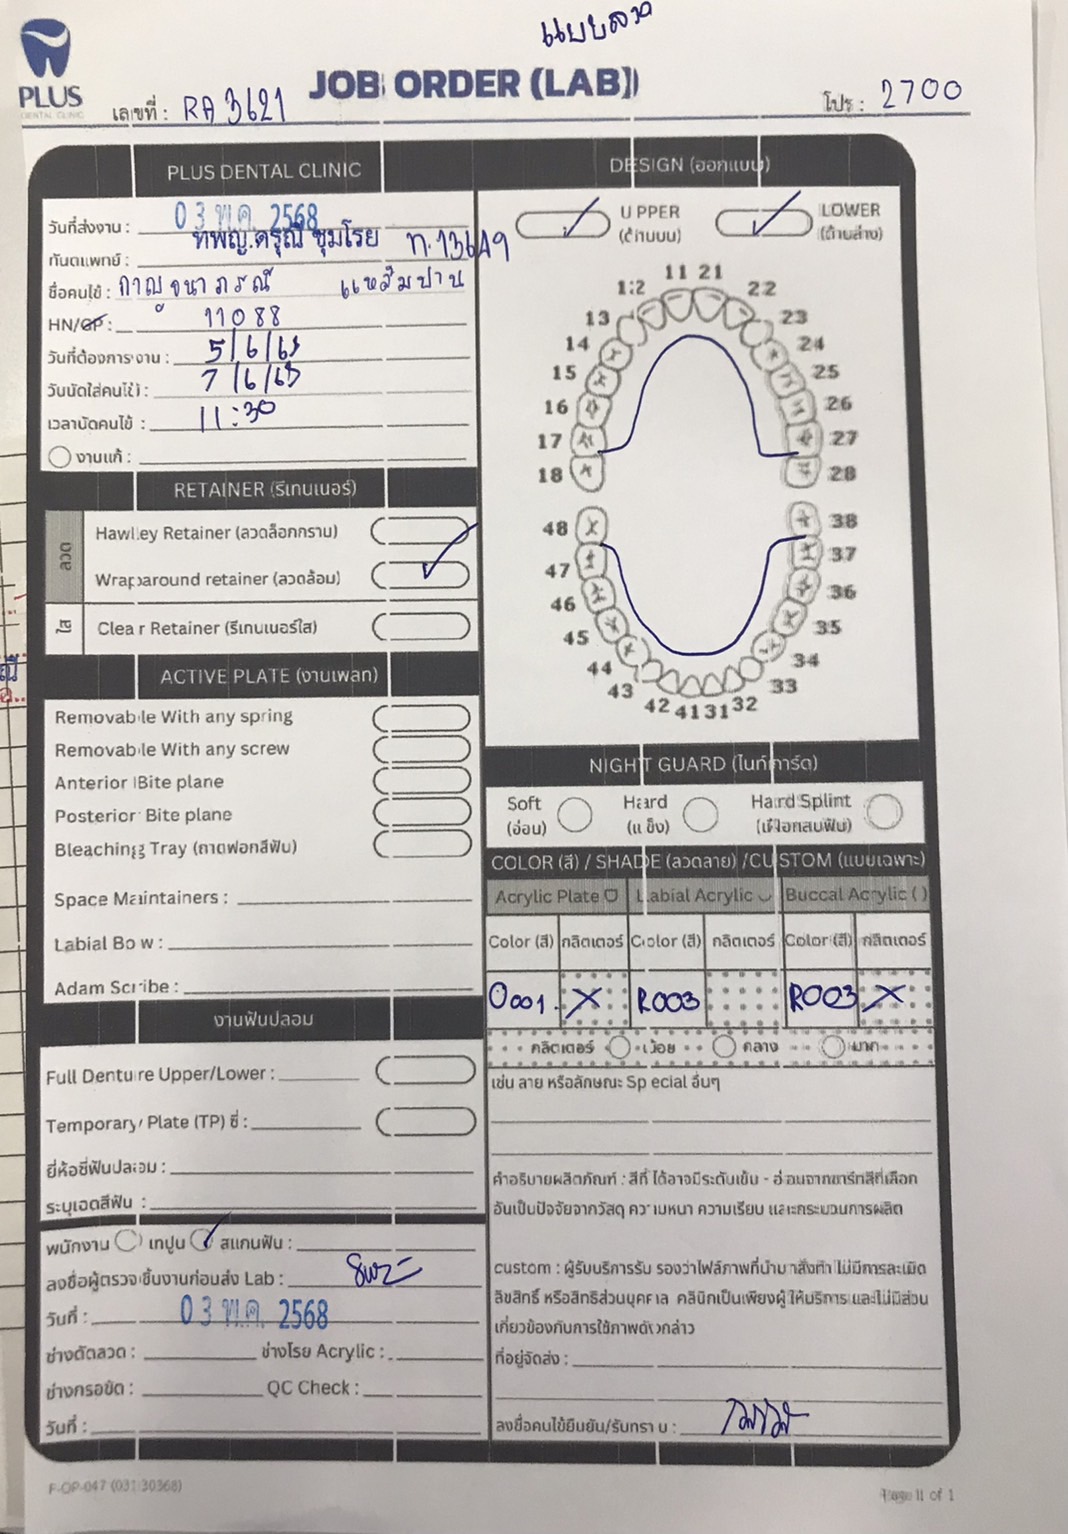 แบบลวด
PLUS
DENTAL CLINIC
JOB ORDER (LAB)
เลขที่ : RA 3621
โปร : 2700
PLUS DENTAL CLINIC
วันที่ส่งงาน : 03 พ.ค. 2568
ทันตแพทย์ : ทพญ.ดรุณี ชุมโรย ท.13649
ชื่อคนไข้ : กาญจนาภรณ์ แหลมปาน
HN/OP : 11088
วันที่ต้องการงาน : 5/6/68
วันนัดใส่คนไข้ : 7/6/68
เวลานัดคนไข้ : 11:30
งานแก้ :
RETAINER (รีเทนเนอร์)
ลวด
Hawley Retainer (ลวดล็อกกราม)
Wraparound retainer (ลวดล้อม)
ใส
Clear Retainer (รีเทนเนอร์ใส)
ACTIVE PLATE (งานเพลท)
Removable With any spring
Removable With any screw
Anterior Bite plane
Posterior Bite plane
Bleaching Tray (ถาดฟอกสีฟัน)
Space Maintainers :
Labial Bow :
Adam Scribe :
งานฟันปลอม
Full Denture Upper/Lower :
Temporary Plate (TP) ซี่ :
ยี่ห้อซี่ฟันปลอม :
ระบุเฉดสีฟัน :
พนักงาน เทปูน สแกนฟัน :
ลงชื่อผู้ตรวจชิ้นงานก่อนส่ง Lab :
วันที่ : 03 พ.ค. 2568
ช่างดัดลวด : ช่างโรย Acrylic :
ช่างกรอขัด : QC Check :
วันที่ :
DESIGN (ออกแบบ)
UPPER (ด้านบน)
LOWER (ด้านล่าง)
11 21
12 22
13 23
14 24
15 25
16 26
17 27
18 28
48 38
47 37
46 36
45 35
44 34
43 33
42 41 31 32
NIGHT GUARD (ไนท์การ์ด)
Soft (อ่อน)
Hard (แข็ง)
Hard Splint (เฝือกสบฟัน)
COLOR (สี) / SHADE (ลวดลาย) /CUSTOM (แบบเฉพาะ)
Acrylic Plate Labial Acrylic Buccal Acrylic ( )
Color (สี) กลิตเตอร์ Color (สี) กลิตเตอร์ Color (สี) กลิตเตอร์
O001. X R003 R003 X
กลิตเตอร์ น้อย กลาง มาก
เช่น ลาย หรือลักษณะ Special อื่นๆ
คำอธิบายผลิตภัณฑ์ : สีที่ได้อาจมีระดับเข้ม - อ่อนจากชาร์ทสีที่เลือก
อันเป็นปัจจัยจากวัสดุ ความหนา ความเรียบ และกระบวนการผลิต
custom : ผู้รับบริการรับรองว่าไฟล์ภาพที่นำมาสั่งทำ ไม่มีการละเมิด
ลิขสิทธิ์ หรือสิทธิส่วนบุคคล คลินิกเป็นเพียงผู้ให้บริการ และไม่มีส่วน
เกี่ยวข้องกับการใช้ภาพดังกล่าว
ที่อยู่จัดส่ง :
ลงชื่อคนไข้ยืนยัน/รับทราบ :
F-OP-047 (031:30368)
Page 1 of 1